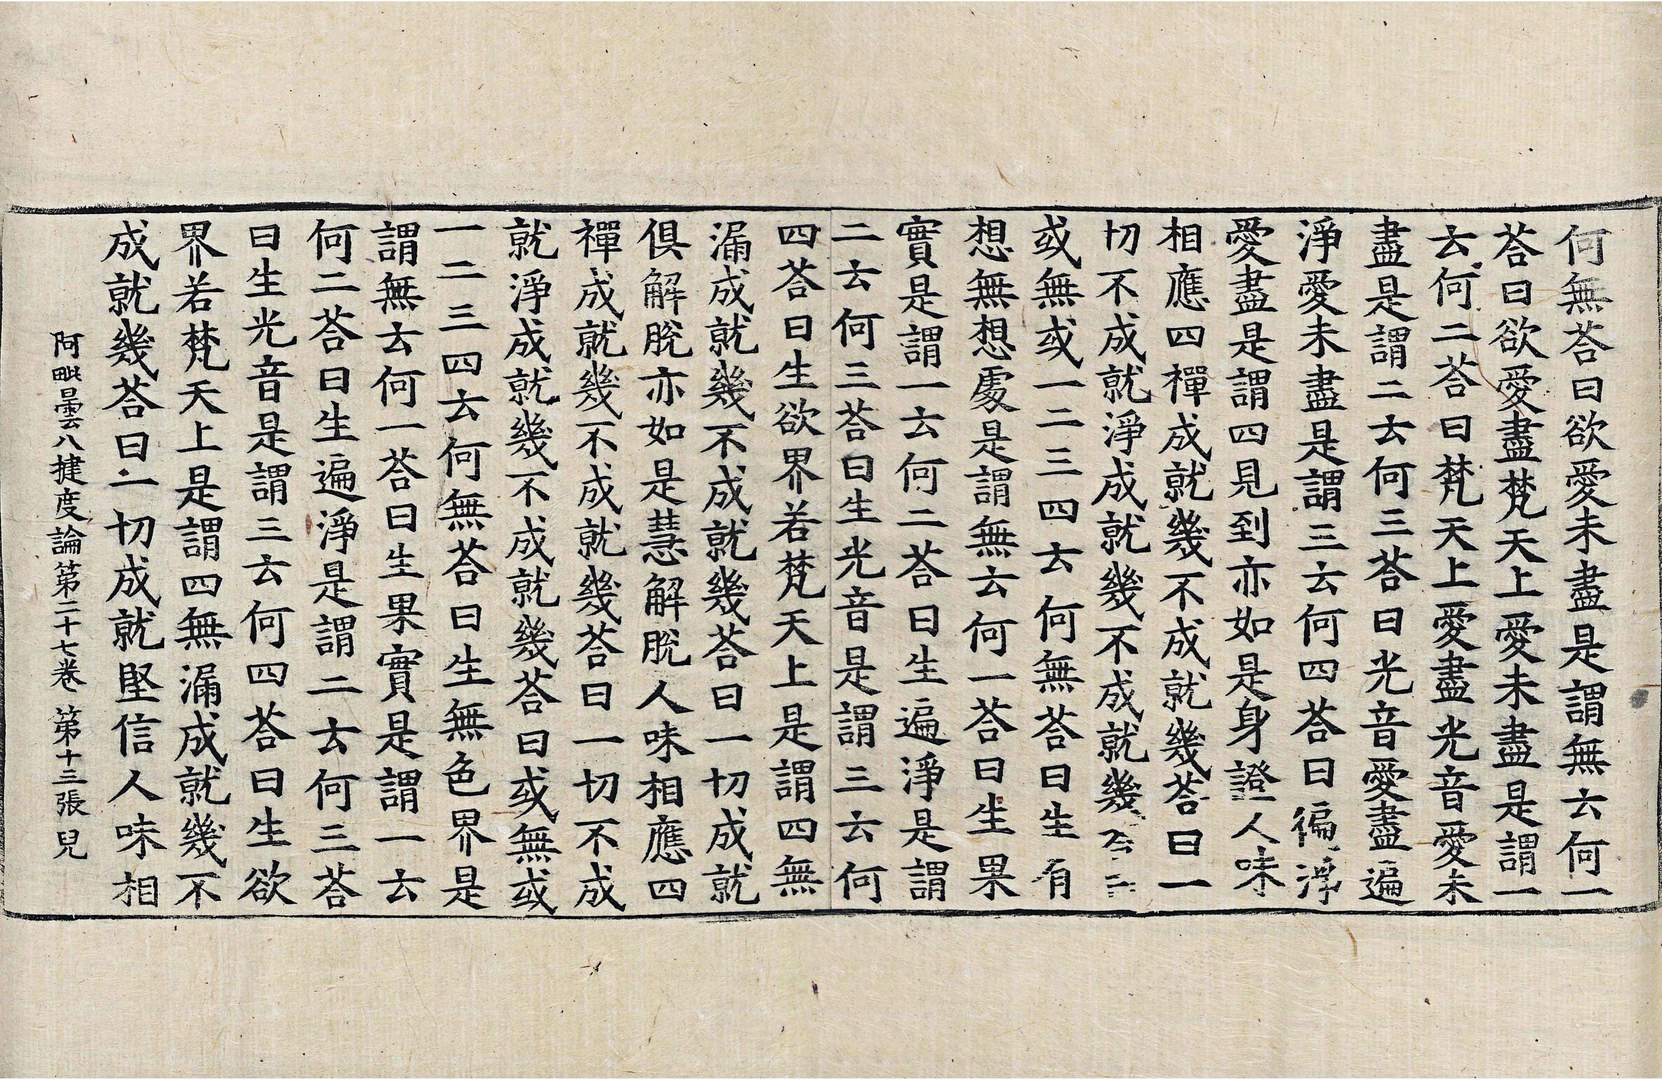 何無荅曰欲愛未盡是謂無云何一
荅曰欲愛盡梵天上愛未盡是謂一
云何二荅曰梵天上愛盡光音愛未
盡是謂二云何三荅曰光音愛盡遍
淨愛未盡是謂三云何四荅曰徧淨
愛盡是謂四見到亦如是身證人味
相應四禪成就幾不成就幾荅曰一
切不成就淨成就幾不成就幾
或無或一二三四云何無荅曰生有
想無想處是謂無云何一荅曰生果
實是謂一云何二荅曰生遍淨是謂
二云何三荅曰生光音是謂三云何
四荅曰生欲界若梵天上是謂四無
漏成就幾不成就幾荅曰一切成就
俱解脫亦如是慧解脫人味相應四
禪成就幾不成就幾荅曰一切不成
就淨成就幾不成就幾荅曰或無或
一二三四云何無荅曰生無色界是
謂無云何一荅曰生果實是謂一云
何二荅曰生遍淨是謂二云何三荅
曰生光音是謂三云何四荅曰生欲
界若梵天上是謂四無漏成就幾不
成就幾荅曰一切成就堅信人味相
阿毗曇八揵度論第二十七卷 第十三張 兒